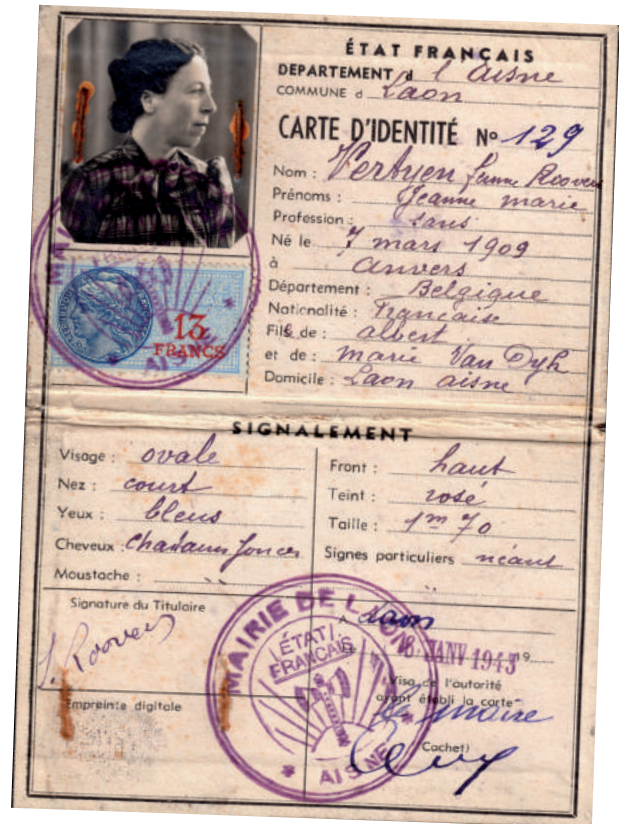 ÉTAT FRANÇAIS
DEPARTEMENT d l'Aisne
COMMUNE d Laon
CARTE D'IDENTITÉ No 129
Nom : Vertuen femme Roovers
Prénoms : Jeanne marie
Profession : sans
Né le 7 mars 1909
à Anvers
Département : Belgique
Nationalité : Française
Fils de : albert
et de : marie Van Dyk
Domicile : Laon aisne
13
FRANCS
SIGNALEMENT
Visage : ovale
Nez : court
Yeux : bleus
Cheveux : chatains foncés
Moustache :
Front : haut
Teint : rosé
Taille : 1m 70
Signes particuliers néant
Signature du Titulaire
J. Roovers
Empreinte digitale
A Laon
8 JANV 1943 19
Visa de l'autorité
ayant établi la carte
le maire
(Cachet)
MAIRIE DE LAON
ÉTAT
FRANÇAIS
* AISNE *